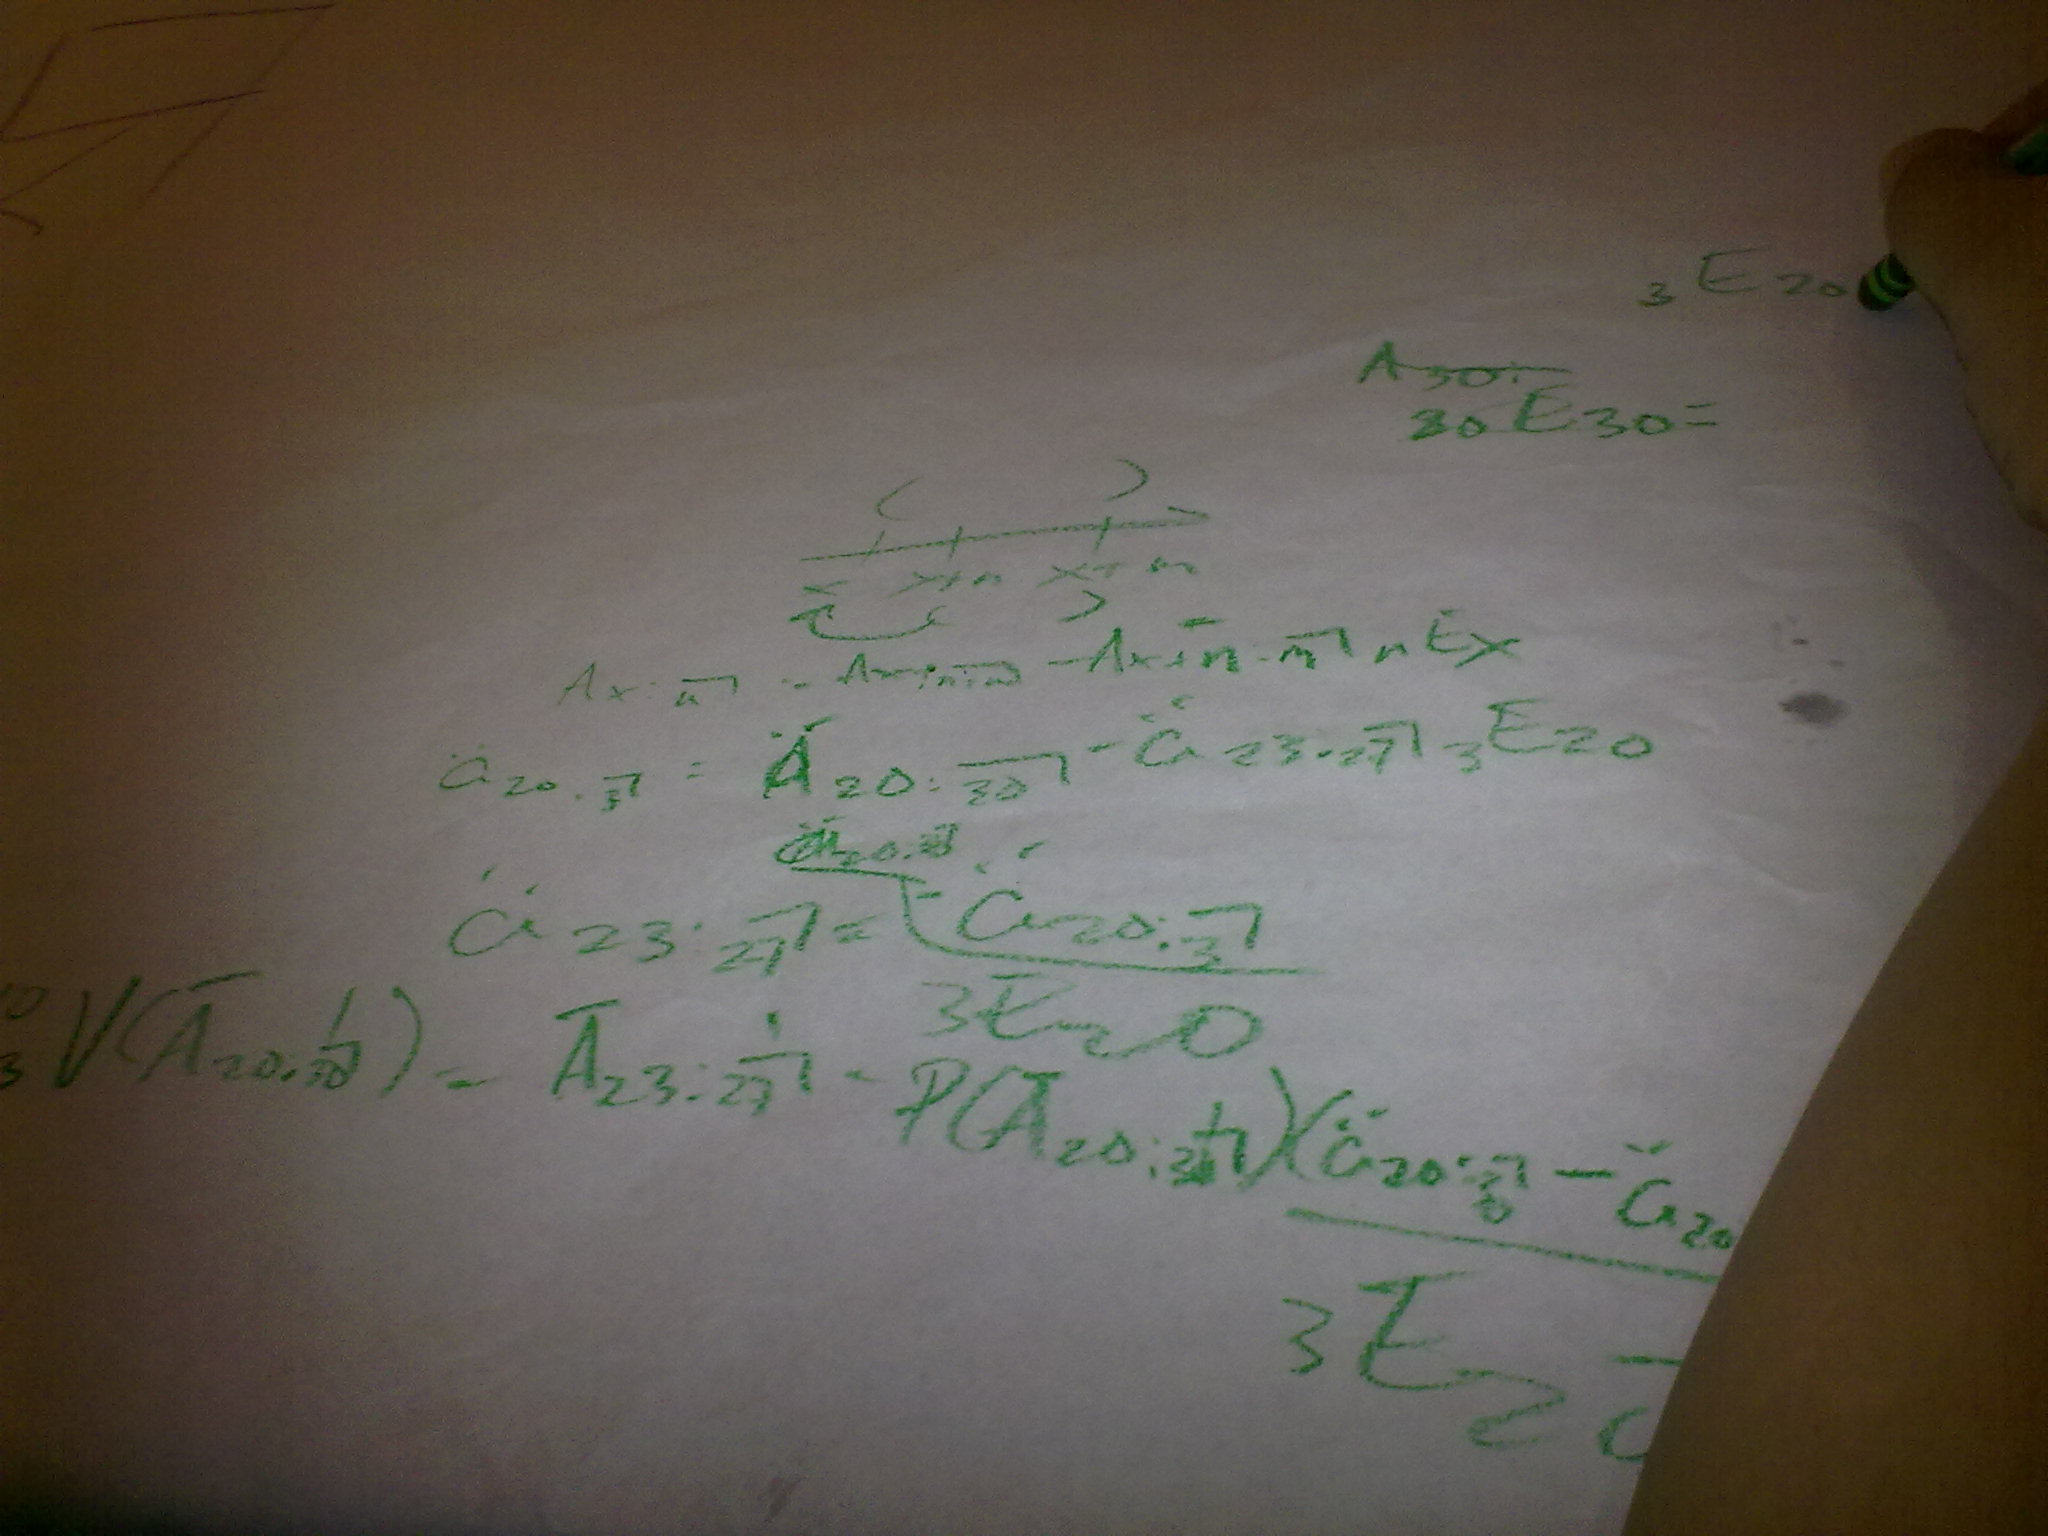 3E20
A30:
30E30=
x x+n x+m
Ax:n̅| = - Ax+n:m̅| nEx
ä20:3̅| = Ä20:3̅0̅| - ä23:27̅| 3E20
ä20:3̅0̅|
ä23:27̅| = - ä20:3̅|
3E20
10
3V(Ā20:30̅|) = Ā23:27̅| - P(Ā20:30̅|)(ä20:30̅| - ä20
3E20